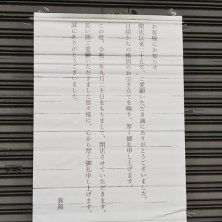 お客様にお知らせ
開店以来ご愛顧いただき誠にありがとうございました。
日頃からの格別のお引き立てを賜り、厚く御礼申し上げます。
この度、令和二年九月二十日をもちまして、閉店させていただきます。
長い間ご愛顧いただきました皆々様に、心から厚く御礼申し上げます。
誠にありがとうございました。